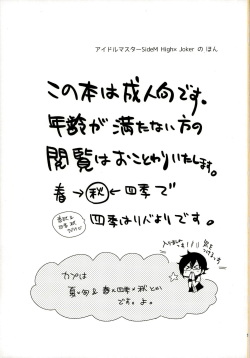 アイドルマスターSideM High×Joker の ほん
この本は成人向です。
年齢が 満たない方の
閲覧はおことわりいたします。
春→秋←四季で
四季はリバよりです。
カプは
夏×旬 & 春×四季×秋 とか
です。よ。